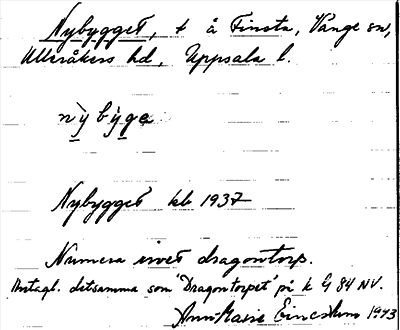 Nybygget, t å Finsta, Vänge sn,
Ulleråkers hd, Uppsala l.
nỳ bỳge
Nybygget kb 1937
Numera rivet dragontorp.
Antagl. detsamma som "Dragontorpet" på k G 84 NV.
Ann Marie 1973